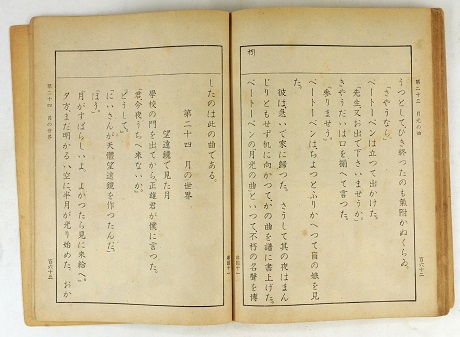 第二十三 月光の曲
百六十二
朽
うつとしてひき終つたのも氣附かぬくらゐ。
「さやうなら。」
ベートーベンは立つて出かけた。
「先生、又お出で下さいませうか。」
きやうだいは口を揃へて言つた。
「參りませう。」
ベートーベンは、ちよつとふりかへつて盲の娘を見
た。
彼は急いで家に歸つた。さうして其の夜はまん
じりともせず机に向かつて、かの曲を譜に書上げた。
ベートーベンの「月光の曲」といつて、不朽の名聲を博
したのは此の曲である。
第二十四 月の世界
望遠鏡で見た月
學校の門を出てから、正雄君が僕に言つた。
「君、今夜うちへ來ないか。」
「どうして。」
「にいさんが天體望遠鏡を作つたんだ。」
「ほう。」
「月がすばらしいよ。よかつたら見に來給へ。」
夕方、まだ明かるい空に半月が光り始めた。おか
第二十四 月の世界
百六十三